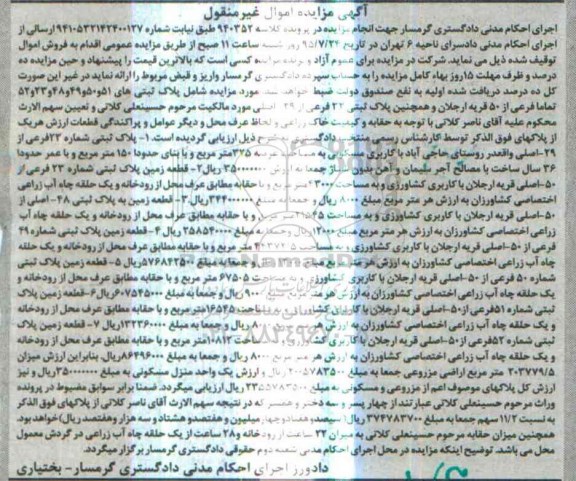 آگهی مزایده اموال غیرمنقول
اجرای احکام مدنی دادگستری گرمسار جهت انجام مزایده در پرونده کلاسه 940352 طبق نیابت شماره 9410532142400127 ارسالی از
اجرای احکام مدنی دادسرای ناحیه 6 تهران در تاریخ 95/7/24 روز شنبه ساعت 11 صبح از طریق مزایده عمومی اقدام به فروش اموال
توقیف شده ذیل می نماید. شرکت در مزایده برای عموم آزاد و برنده مزایده کسی است که بالاترین قیمت را پیشنهاد و حین مزایده ده
درصد و ظرف مهلت 15روز بهاء کامل مزایده را به حساب سپرده دادگستری گرمسار واریز و قبض مربوط را ارائه نماید در غیر این صورت
کل ده درصد دریافت شده اولیه به نفع صندوق دولت ضبط خواهد شد. مورد مزایده شامل پلاک ثبتی های 51و50و49و48و23و52
تماما فرعی از 50 قریه ارجلان و همچنین پلاک ثبتی 22 فرعی از 29- اصلی مورد مالکیت مرحوم حسینعلی کلاتی و تعیین سهم الارث
محکوم علیه آقای ناصر کلاتی با توجه به حقابه و کیفیت خاک زراعی و لحاظ عرف محل و دیگر عوامل و پراکندگی قطعات ارزش هریک
از پلاکهای فوق الذکر توسط کارشناس رسمی منتخب دادگستری بشرح ذیل ارزیابی گردیده است. 1- پلاک ثبتی شماره 22فرعی از
29-اصلی واقعدر روستای حاجی آباد با کاربری مسکونی به مساحت عرصه 375متر مربع و با بنای حدودا 150 متر مربع و با عمر حدودا
36 سال ساخت با مصالح آجر سیمان و آهن بدون انشعاب گاز جمعا به ارزش 350000000 ریال 2- قطعه زمین پلاک ثبتی شماره 23 فرعی از
50-اصلی قریه ارجلان با کاربری کشاورزی و به مساحت 43000متر مربع و با حقابه مطابق عرف محل از رودخانه و یک حلقه چاه آب زراعی
اختصاصی کشاورزان به ارزش هر متر مربع مبلغ 8000 ریال و جمعا به مبلغ 344000000ریال 3- قطعه زمین به پلاک ثبتی 48-اصلی از
50-اصلی قریه ارجلان با کاربری کشاورزی و به مساحت 21545متر مربع و با حقابه مطابق عرف محل از رودخانه و یک حلقه چاه آب
زراعی اختصاصی کشاورزان به ارزش هر متر مربع مبلغ 12000ریال و جمعا به مبلغ 258540000 ریال 4- قطعه زمین پلاک ثبتی شماره 49
فرعی از 50-اصلی قریه ارجلان با کاربری کشاورزی و به مساحت متر مربع و با حقابه مطابق عرف محل از رودخانه و یک حلقه
چاه آب زراعی اختصاصی کشاورزان به ارزش هر متر مربع مبلغ ریال و جمعا به مبلغ ریال 5- قطعه زمین پلاک ثبتی
شماره 50 فرعی از 50-اصلی قریه ارجلان با کاربری کشاورزی و به مساحت 67505 متر مربع و با حقابه مطابق عرف محل از رودخانه و
یک حلقه چاه آب زراعی اختصاصی کشاورزان به ارزش هر متر مربع مبلغ 9000 ریال و جمعا به مبلغ 607545000ریال 6- قطعه زمین پلاک
ثبتی شماره 51فرعی از 50-اصلی قریه ارجلان با کاربری کشاورزی و به مساحت 16545متر مربع و با حقابه مطابق عرف محل از رودخانه
و یک حلقه چاه آب زراعی اختصاصی کشاورزان به ارزش هر متر مربع مبلغ 8000 ریال و جمعا به مبلغ 132360000 ریال 7- قطعه زمین پلاک
ثبتی شماره 52فرعی از 50-اصلی قریه ارجلان با کاربری کشاورزی و به مساحت 10812متر مربع و با حقابه مطابق عرف محل از رودخانه
و یک حلقه چاه آب زراعی اختصاصی کشاورزان به ارزش هر متر مربع 8000 ریال و جمعا به مبلغ 86496000ریال، بنابراین ارزش میزان
203779/5 متر مربع اراضی مزروعی جمعا به مبلغ 2005783500 ریال و ارزش یک واحد منزل مسکونی به مبلغ 350000000ریال و نیز
ارزش کل پلاکهای موصوف اعم از مزروعی و مسکونی به مبلغ 2355783500 ریال ارزیابی میگردد. ضمنا برابر سوابق مضبوط در پرونده
وراث مرحوم حسینعلی کلاتی عبارتند از چهار پسر و سه دختر و همسر که در نتیجه سهم الارث آقای ناصر کلاتی از پلاکهای فوق الذکر
به نسبت 11/2 سهم جمعا به مبلغ 374783700 ریال(سیصد و هفتاد و چهار میلیون و هفتصد و هشتاد و سه هزار و هفتصد ریال)خواهد بود.
همچنین میزان حقابه مرحوم حسینعلی کلاتی به میزان 24 ساعت از رودخانه و 28 ساعت از یک حلقه چاه آب زراعی در گردش معمول
محل می باشد. توضیح اینکه مزایده در محل اجرای احکام مدنی شعبه دوم حقوقی دادگستری گرمسار برگزار میگردد.
دادورز اجرای احکام مدنی دادگستری گرمسار- بختیاری